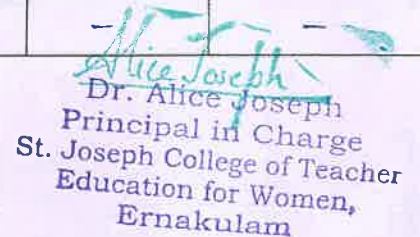 - -
Alice Joseph
Dr. Alice Joseph
Principal in Charge
St. Joseph College of Teacher
Education for Women,
Ernakulam